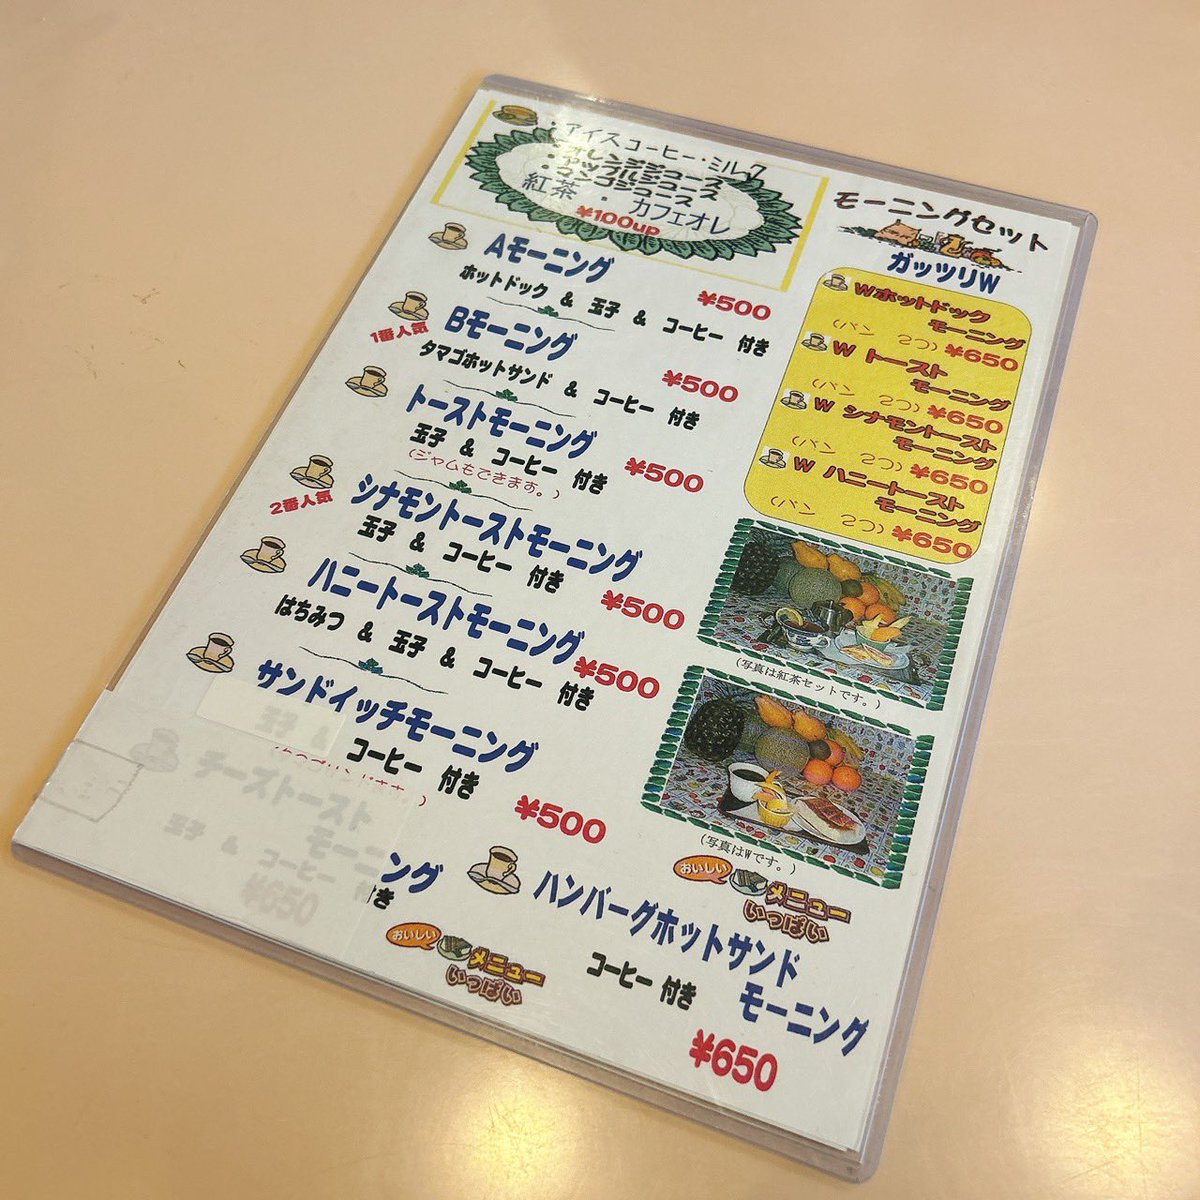 ・アイスコーヒー・ミルク
・オレンジジュース
・アップルジュース
・マンゴジュース
紅茶・カフェオレ
¥100up
モーニングセット
ガッツリW
Aモーニング
ホットドック & 玉子 & コーヒー 付き
¥500
1番人気
Bモーニング
タマゴホットサンド & コーヒー 付き
¥500
トーストモーニング
玉子 & コーヒー 付き
(ジャムもできます。)
¥500
2番人気
シナモントーストモーニング
玉子 & コーヒー 付き
¥500
ハニートーストモーニング
はちみつ & 玉子 & コーヒー 付き
¥500
サンドイッチモーニング
玉子 &
コーヒー 付き
¥500
チーズトースト
モーニング
玉子 & コーヒー 付き
¥650
Wホットドック
モーニング
(パン 2つ) ¥650
W トースト
モーニング
(パン 2つ) ¥650
W シナモントースト
モーニング
(パン 2つ) ¥650
W ハニートースト
モーニング
(パン 2つ) ¥650
(写真は紅茶セットです。)
(写真はWです。)
おいしい
メニュー
いっぱい
ハンバーグホットサンド
モーニング
コーヒー 付き
¥650
おいしい
メニュー
いっぱい